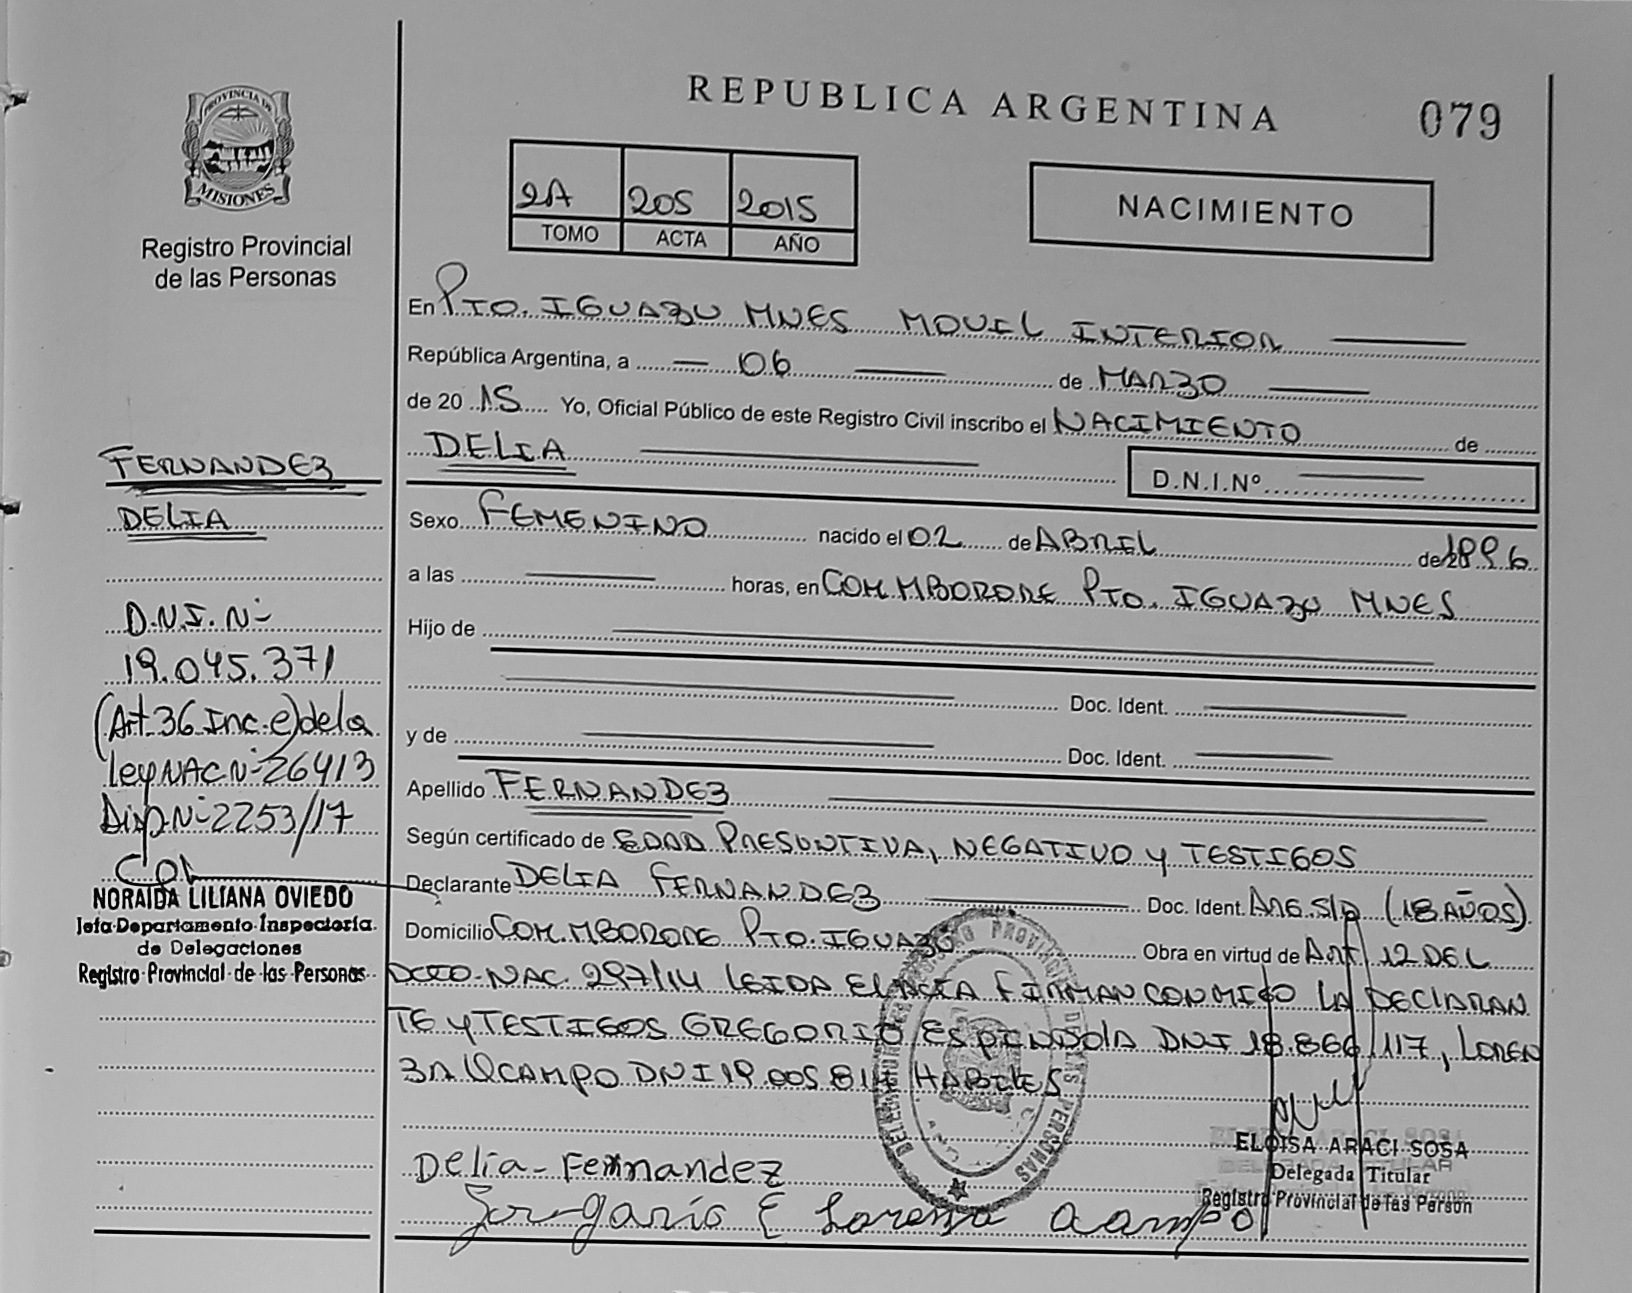 REPUBLICA ARGENTINA
079
PROVINCIA DE
MISIONES
Registro Provincial
de las Personas
2A 205 2015
TOMO ACTA AÑO
NACIMIENTO
En PTO. IGUAZU MNES MOVIL INTERIOR
República Argentina, a 06 de MARZO
de 20 15 Yo, Oficial Público de este Registro Civil inscribo el NACIMIENTO de
DELIA
D.N.I.Nº
Sexo FEMENINO nacido el 02 de ABRIL de 1996
a las horas, en COM. MBORORE PTO. IGUAZU MNES
Hijo de
Doc. Ident.
y de
Doc. Ident.
Apellido FERNANDEZ
Según certificado de EDAD PRESUNTIVA, NEGATIVO y TESTIGOS
Declarante DELIA FERNANDEZ Doc. Ident. ARG. S/D (18 AÑOS).
Domicilio COM. MBORORE PTO. IGUAZÚ Obra en virtud de Art 12 DEL
DCTO. NAC. 297/14 LEIDA EL ACTA FIRMAN CONMIGO LA DECLARAN
TE y TESTIGOS GREGORIO ESPINDOLA DNI 18.866.117, LOREN
ZA OCAMPO DNI 19.005.814 HABILES
Delia-Fernandez
E Lorenza ocampo
ELOISA ARACI SOSA
Delegada Titular
Registro Provincial de las Person
FERNANDEZ
DELIA
D.N.I. Nº
19.045.371
(Art 36 Inc. e) de la
Ley NAC. Nº 26413
Disp. Nº 2253/17
NORAIDA LILIANA OVIEDO
Jefa Departamento Inspectoría
de Delegaciones
Registro Provincial de las Personas